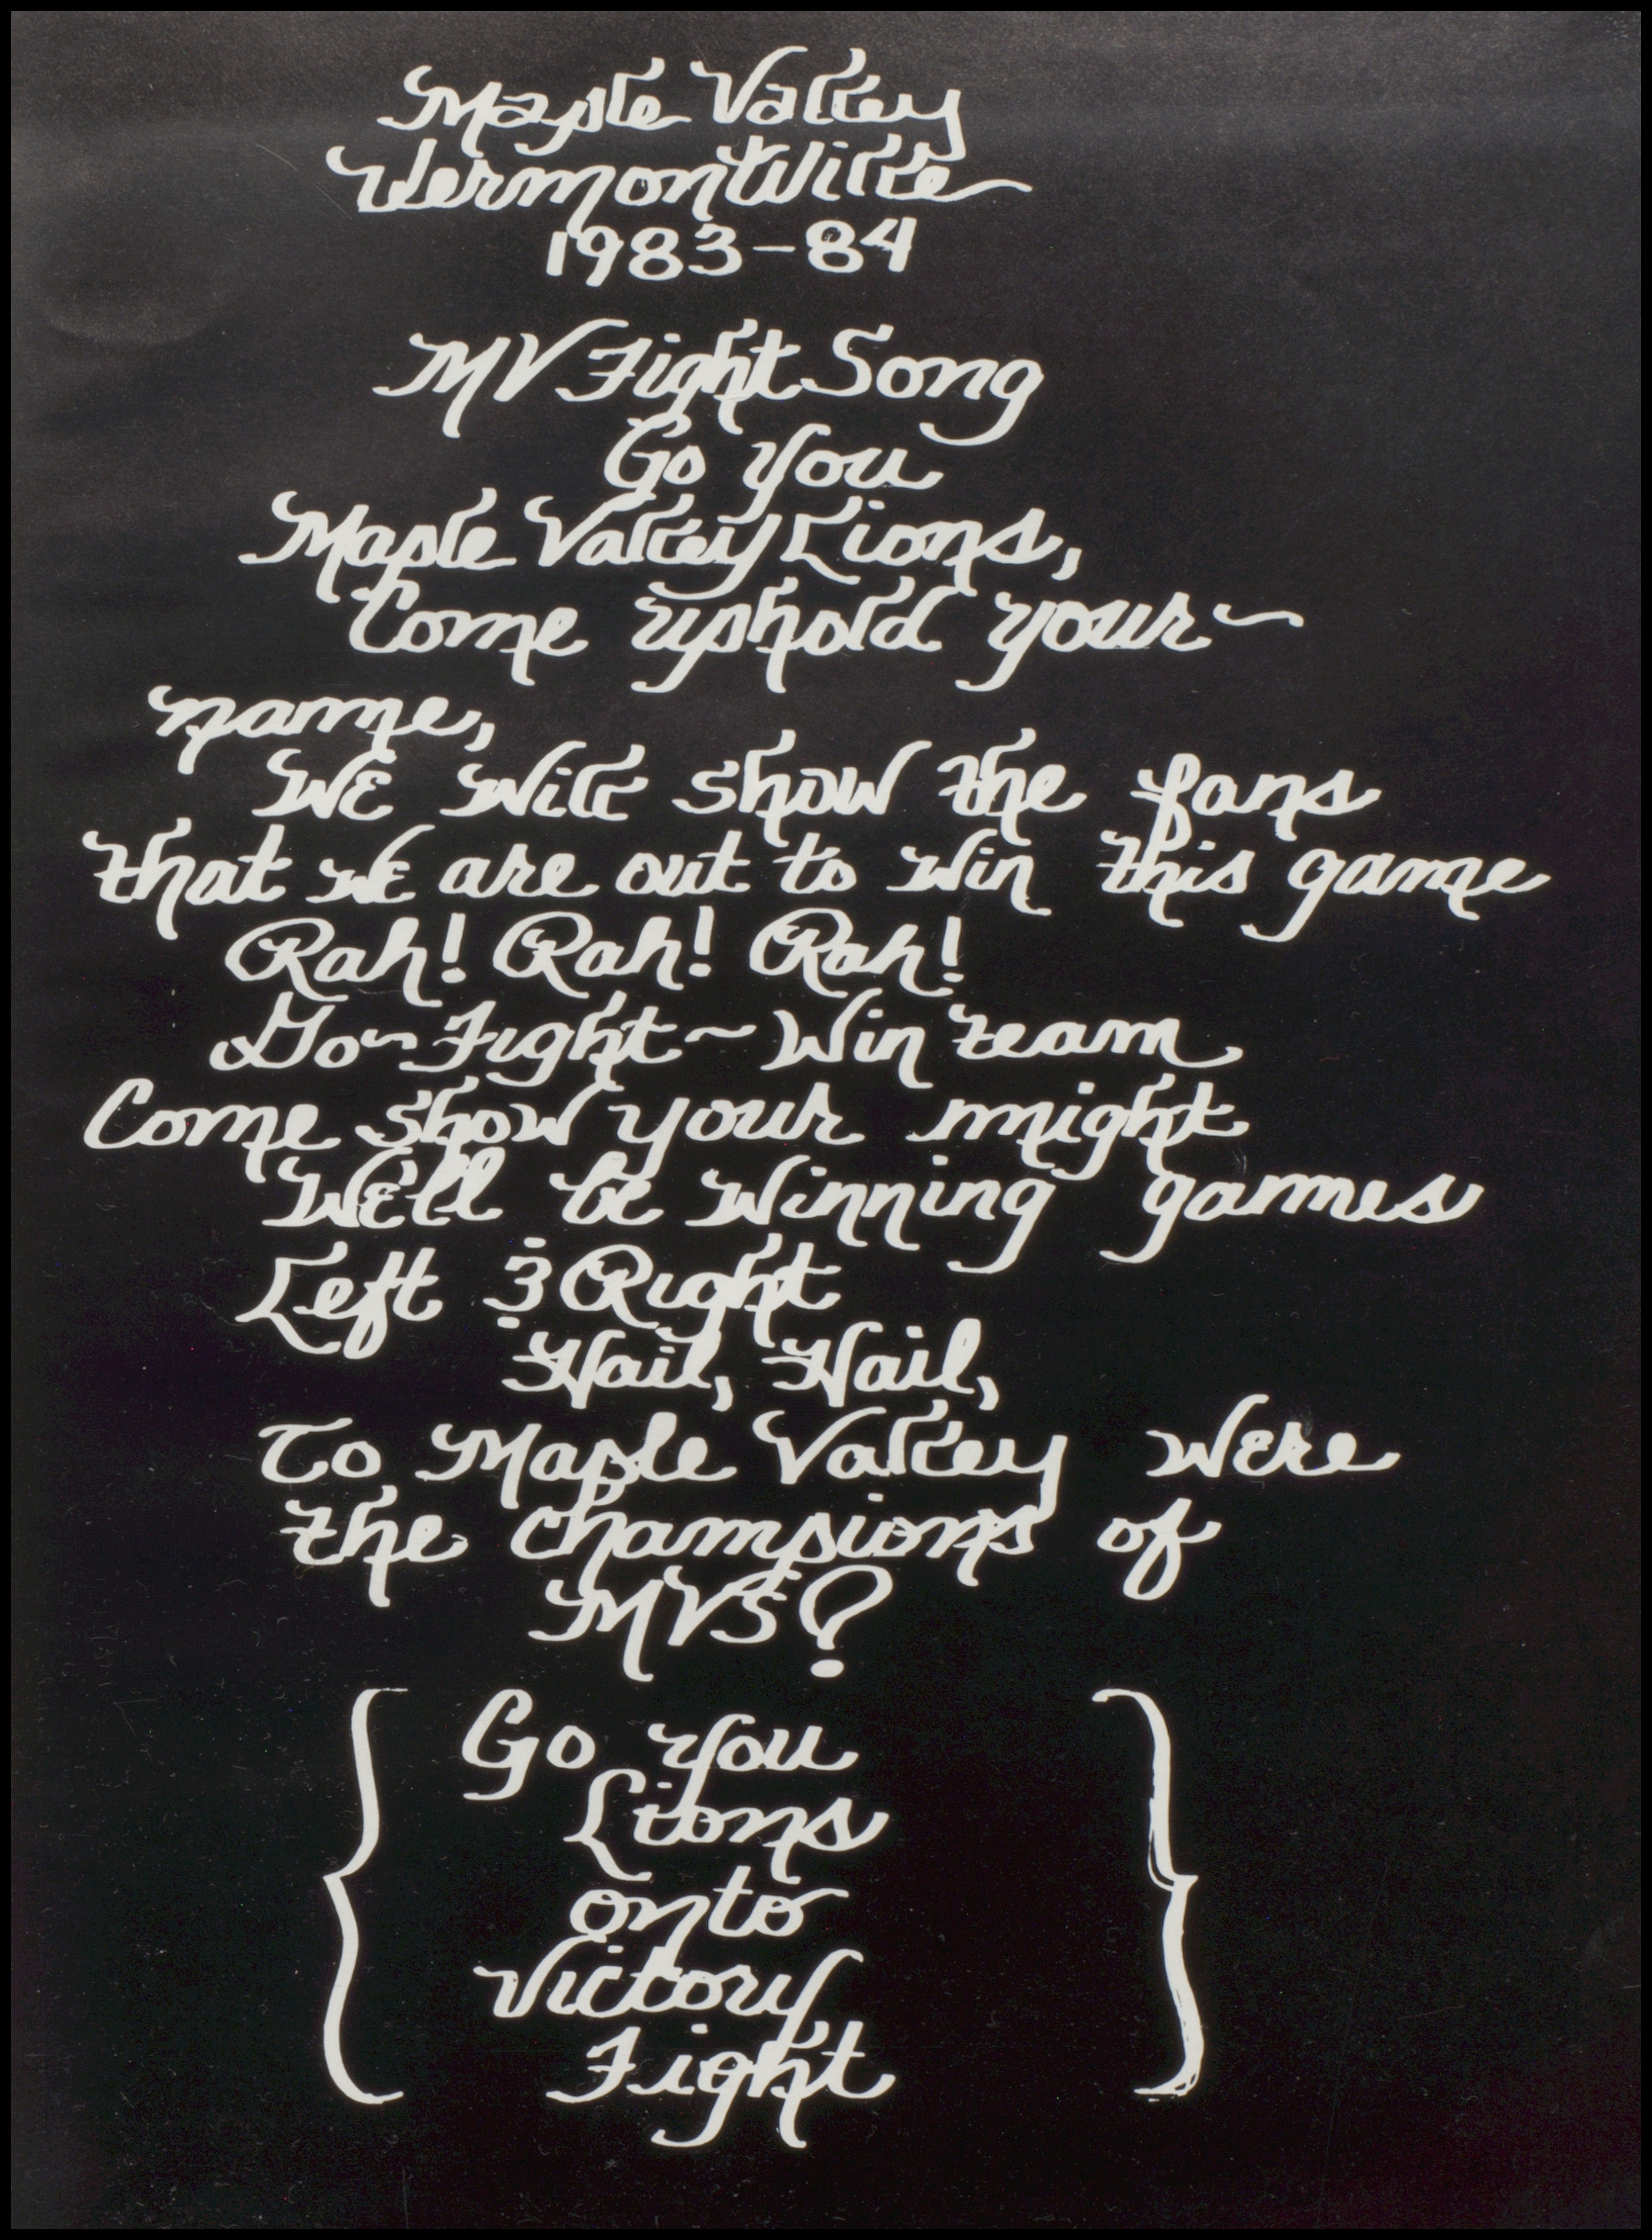 Maple Valley
Vermontville
1983-84
MV Fight Song
Go You
Maple Valley Lions,
Come uphold your~
name,
We Will show the fans
that we are out to win this game
Rah! Rah! Rah!
Go~Fight~Win team
Come show your might
We'll be Winning games
Left & Right
Hail, Hail,
To Maple Valley Were
the champions of
MVS?
Go You
Lions
onto
Victory
Fight